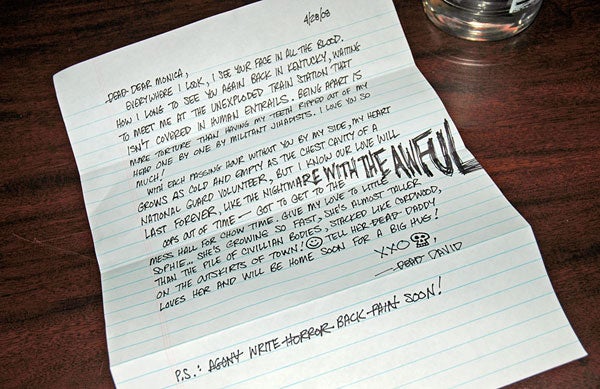 4/28/08
DEAD DEAR MONICA,
EVERYWHERE I LOOK, I SEE YOUR FACE IN ALL THE BLOOD.
HOW I LONG TO SEE YOU AGAIN BACK IN KENTUCKY, WAITING
TO MEET ME AT THE UNEXPLODED TRAIN STATION THAT
ISN'T COVERED IN HUMAN ENTRAILS. BEING APART IS
MORE TORTURE THAN HAVING MY TEETH RIPPED OUT OF MY
HEAD ONE BY ONE BY MILITANT JIHADISTS. I LOVE YOU SO
MUCH!
WITH EACH PASSING HOUR WITHOUT YOU BY MY SIDE, MY HEART
GROWS AS COLD AND EMPTY AS THE CHEST CAVITY OF A
NATIONAL GUARD VOLUNTEER, BUT I KNOW OUR LOVE WILL
LAST FOREVER, LIKE THE NIGHTMARE WITH THE AWFUL
OOPS OUT OF TIME — GOT TO GET TO THE
MESS HALL FOR CHOW TIME. GIVE MY LOVE TO LITTLE
SOPHIE... SHE'S GROWING SO FAST, SHE'S ALMOST TALLER
THAN THE PILE OF CIVILLIAN BODIES, STACKED LIKE CORDWOOD,
ON THE OUTSKIRTS OF TOWN! ☺ TELL HER DEAD DADDY
LOVES HER AND WILL BE HOME SOON FOR A BIG HUG!
XXO☠,
— DEAD DAVID
P.S.: AGONY WRITE HORROR BACK PAIN SOON!